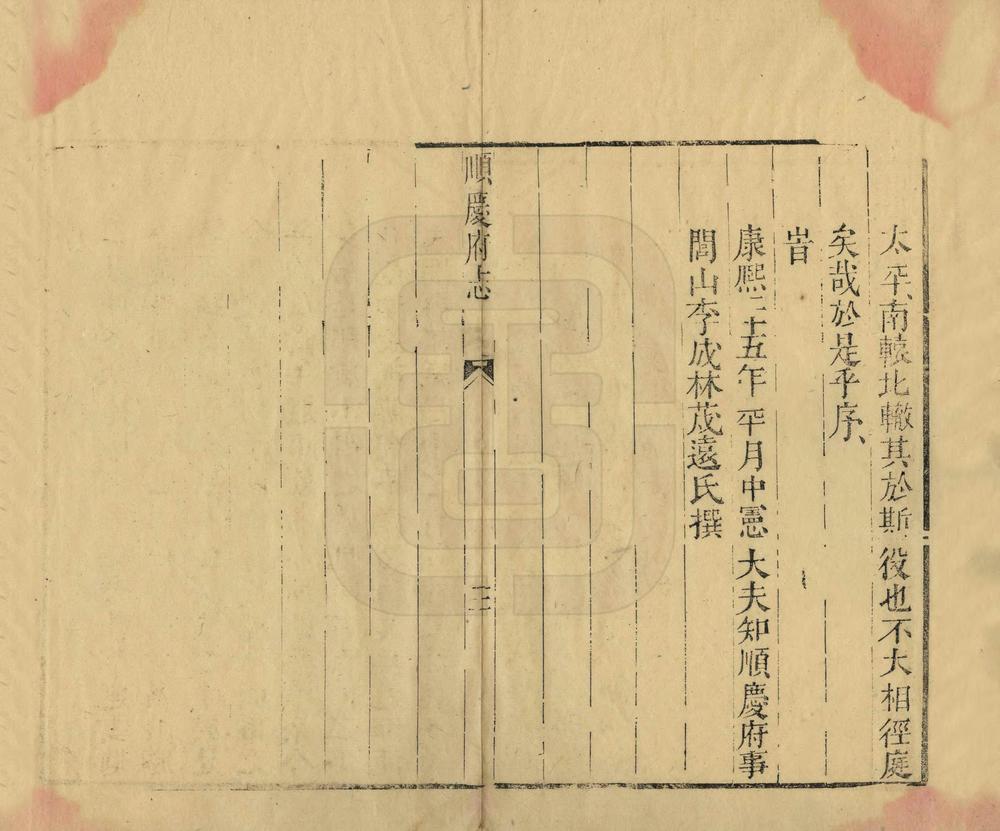 太平南轅北轍其於斯役也不大相徑庭
矣哉於是乎序
旹
康熙二十五年 月中憲大夫知順慶府事
閭山李成林茂遠氏撰
順慶府志
三